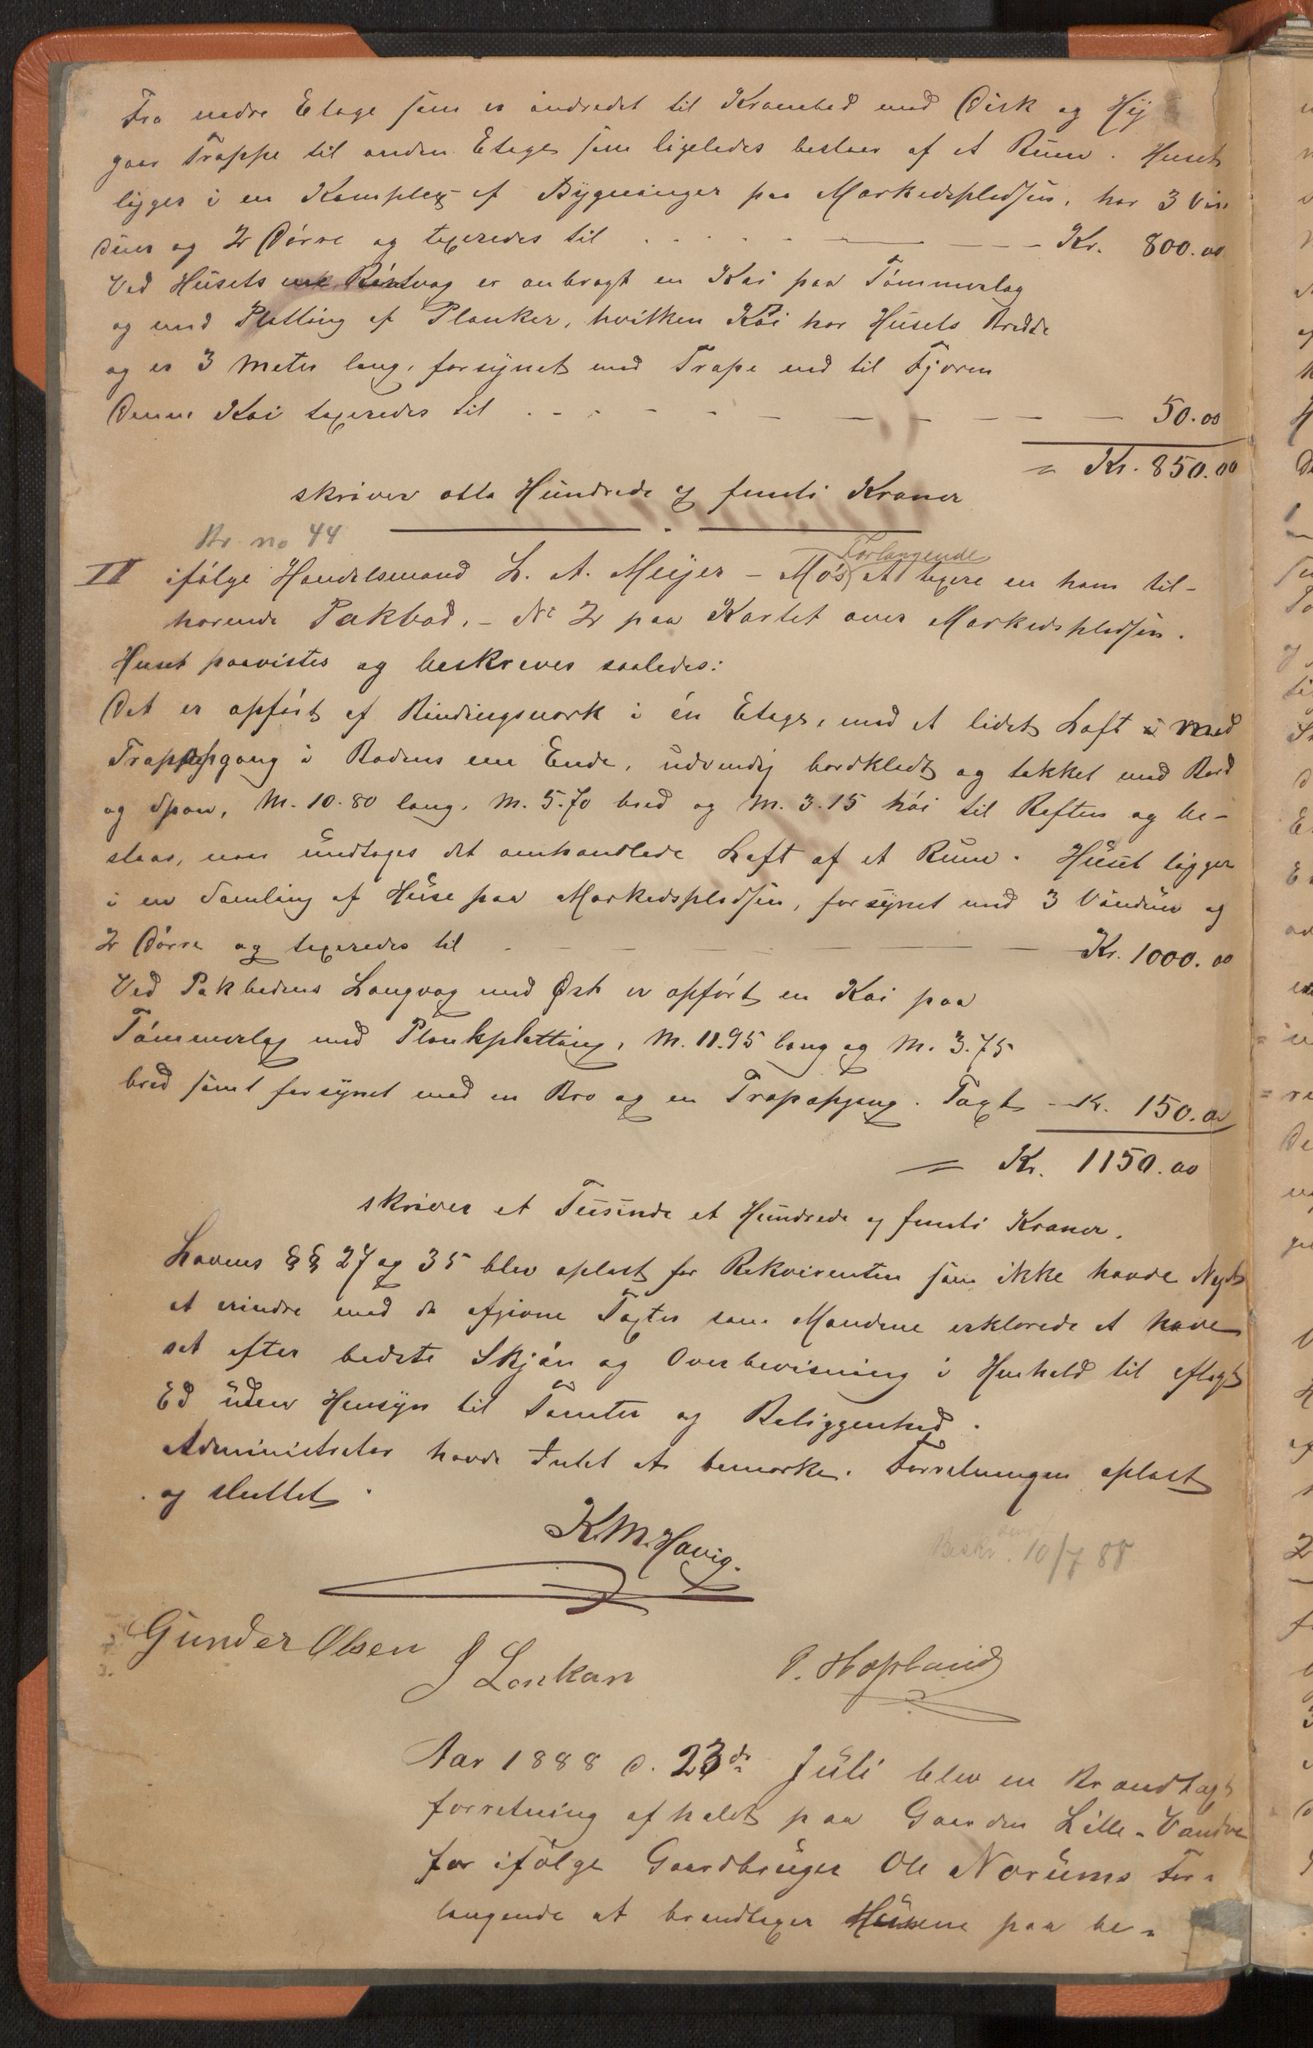 Fra nedre Etage som er indredet til Krambod med Disk og Hy
gaar Trappe til anden Etage som ligeledes bestaar af et Rum. Huset
ligger i en Komplex af Bygninger paa Markedspladsen, har 3 Vin
duer og 2 Dörre og taxeredes til - - - - Kr. 800.00
Ved Husets ene væg er anbragt en Kai paa Tømmerlag
og med Platting af Planker, hvilken Kai har Husets Bredde
og er 3 Meter lang, forsynet med Trape ned til Fjæren
Denne Kai taxeredes til - - - - 50.00
= Kr. 850.00
skriver otte Hundrede og femti Kroner
Br. no 44
II ifölge Handelsmand L. A. Meijer - Mos Forlangende At taxere en ham til-
hørende Pakbod, - No 2 paa Kartet over Markedspladsen.
Huset paavistes og beskreves saaledes:
Det er opført af Bindingsverk i én Etage, med et lidet Loft i med
Trappegang i Bodens ene Ende, udvendig bordklædt og tækket med Bord
og Spon, M. 10.80 lang, M. 5.70 bred og M. 3.15 höi til Raften og be-
staar, naar undtages det omhandlede Loft af et Rum. Huset ligger
i en Samling af Huse paa Markedspladsen, forsynet med 3 Vinduer og
2 Dörre og taxeredes til - - - Kr. 1000.00
Ved Pakbodens Langvæg mod Øst er opfört en Kai paa
Tömmerlag med Plankplatting, M. 11.95 lang og M. 3.75
bred samt forsynet med en Bro og en Trapopgang. Taxt - Kr. 150.00
= Kr. 1150.00
skriver et Tusinde et Hundrede og femti Kroner.
Lovens §§ 27 og 35 blev oplæst for Rekvirenten som ikke havde Noget
at erindre mod de afgivne Taxter som Mændene erklærede at have
sat efter bedste Skjön og Overbevisning i Henhold til aflagt
Ed uden Hensyn til Tomter og Beliggenhed.
Administrator havde Intet at bemærke. Forretningen oplæst
og sluttet.
K.M. Havig.
Beskr. 10/7 88
Gunder Olsen
J Lenkan
P. Hapland
Aar 1888 d. 23de Juli blev en Brandtaxt
forretning afholdt paa Gaarden Lille-Vandve
for ifölge Gaardbruger Ole Norums For-
langende at brandtaxer Husene paa be-